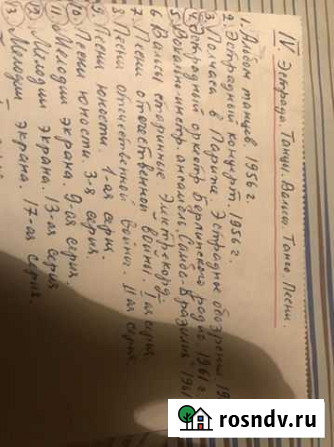 IV. Эстрада. Танцы. Вальсы. Танго. Песни.
1. Альбом танцев. 1956 г.
2. Эстрадный концерт. 1956 г.
3. в Париже. Эстрадные обозрение 19
4. Эстрадный оркестр Берлинского радио 1961 г.
5. Вокально-инстр. ансамбль Самба-Бразилия" 1961
6 Вальсы старинные
7. Песни отечественной войны. I-ая серия
8 Песни отечественной войны. II-ая серия
9. Песни юности. 1-ая серия.
10. Песни юности. 3-я серия
11. Мелодии экрана. 9-ая серия
12. Мелодии экрана. 13-ая серия
13. Мелодии экрана. 17-ая серия.
rosndv.ru